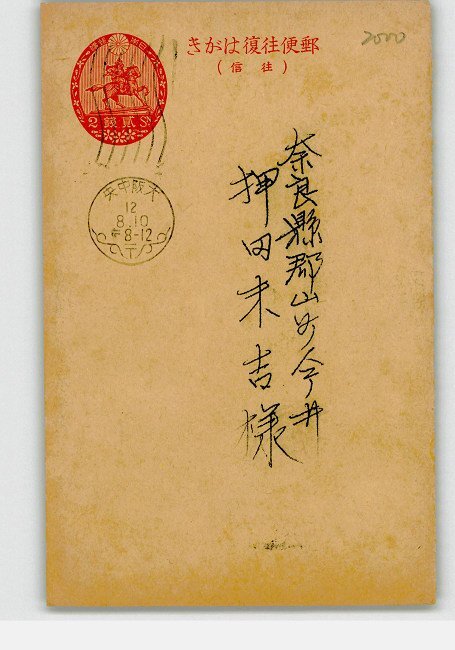 郵便往復はがき
(往信)
2000
2銭貳Sn
大阪中央
12
8.10
后8-12
〒
奈良縣郡山町今井
押田末吉様